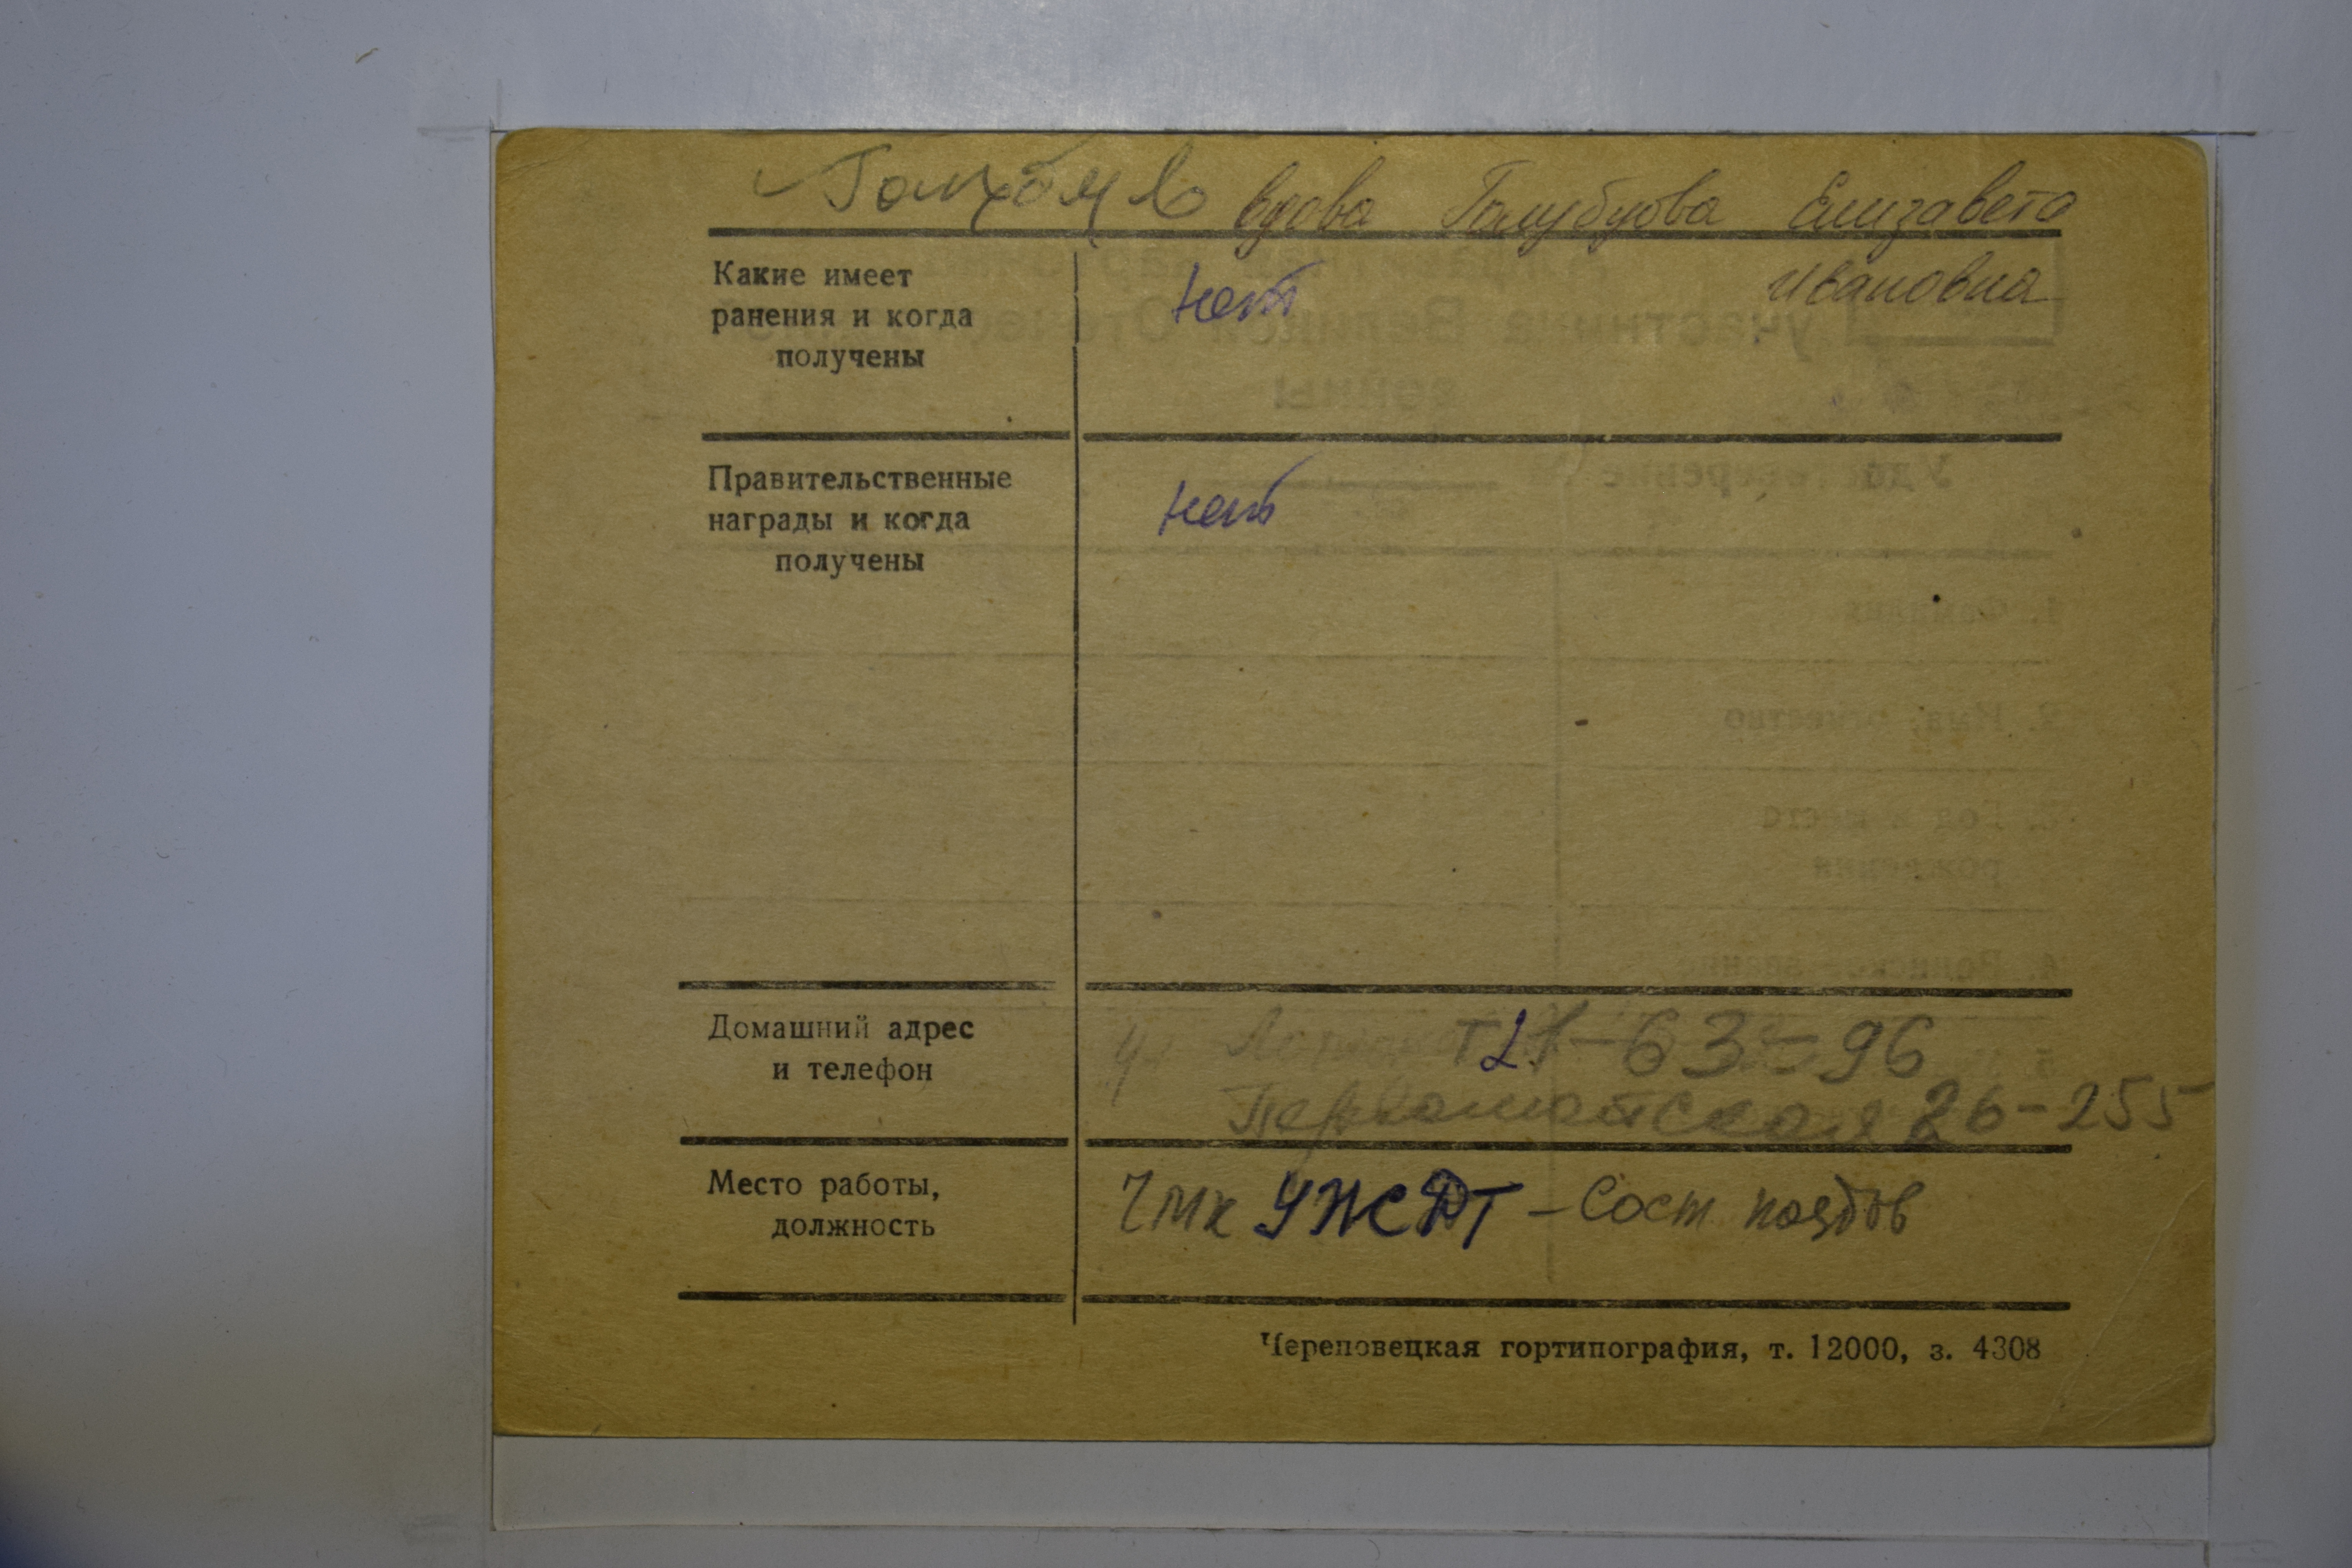 Голубцов вдова Голубцова Елизавета
Ивановна
Какие имеет
ранения и когда
получены
нет
Правительственные
награды и когда
получены
нет
Домашний адрес
и телефон
т 21-63-96
Первомайская 26-255
Место работы,
должность
ЧМК УЖДТ - Сост поездов
Череповецкая гортипография, т. 12000, з. 4308